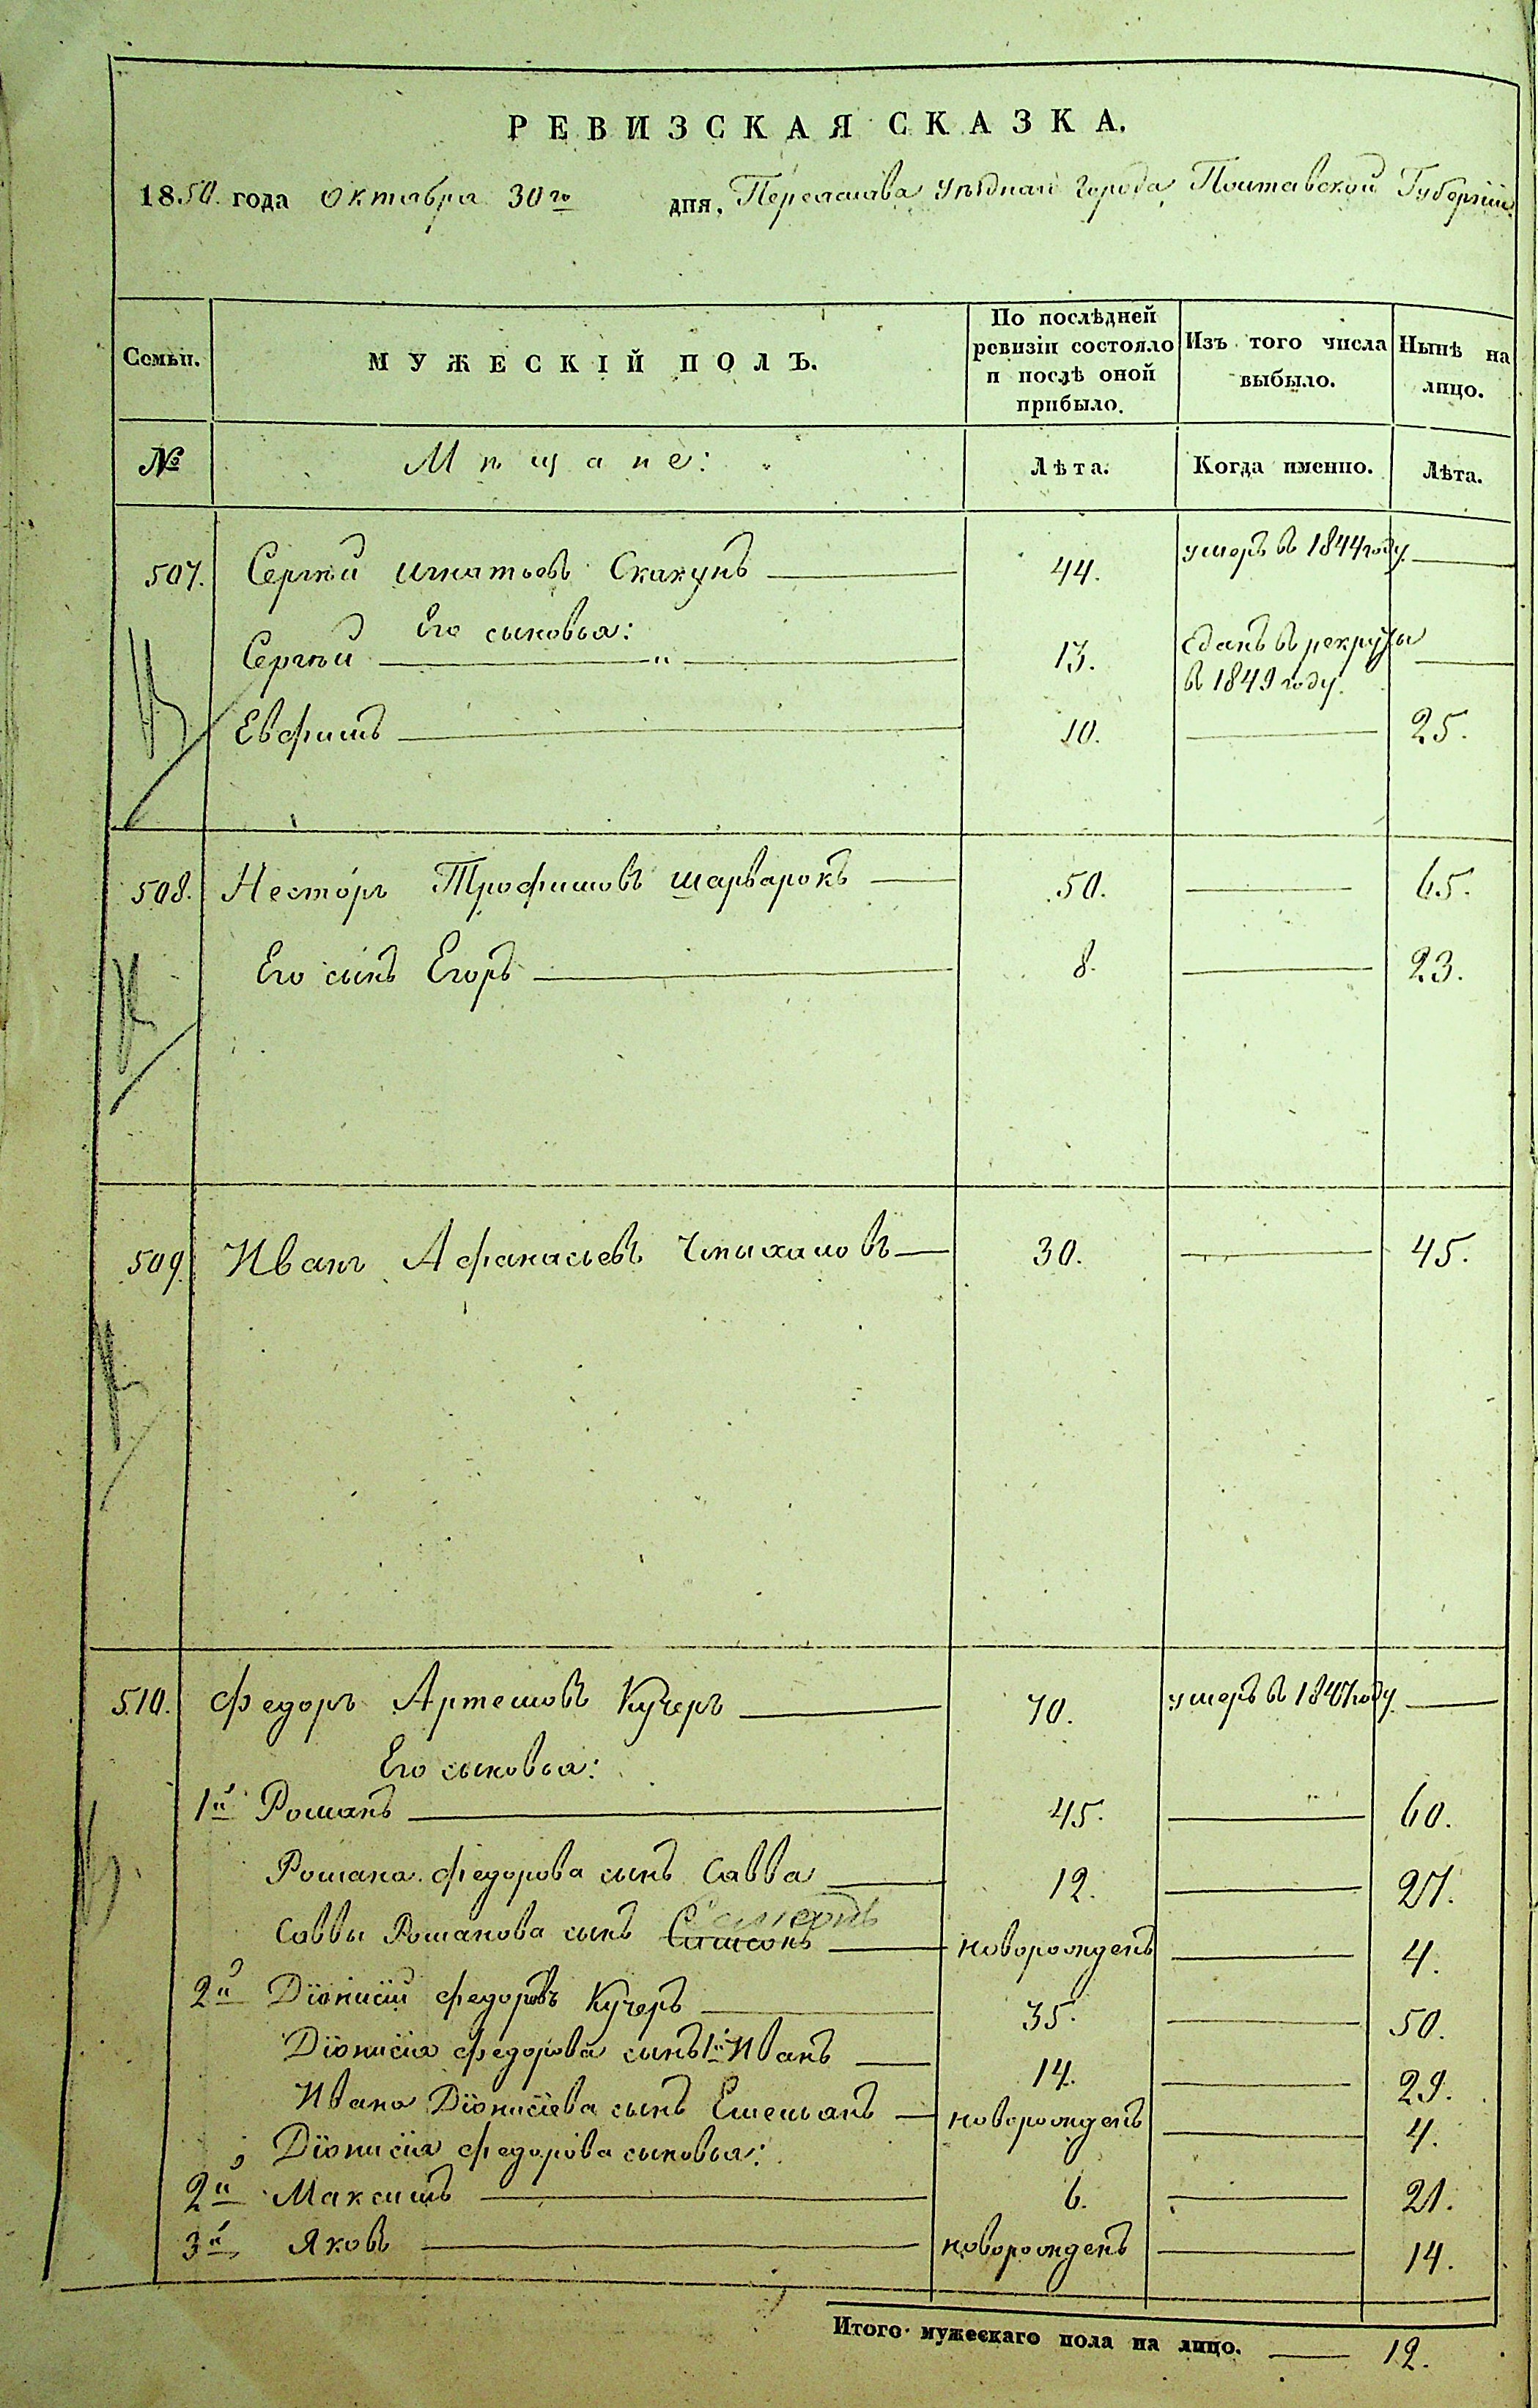 РЕВИЗСКАЯ СКАЗКА.
1850. года Октабра 30го дня, Переаслава Уѣднаго города Полтавской Губерніи.
Семьи. МУЖЕСКІЙ ПОЛЪ. По послѣдней ревизіи состояло и послѣ оной прибыло. Изъ того числа выбыло. Нынѣ на лицо.
№ Мѣщане: Лѣта. Когда именно. Лѣта.
507. Сергѣй Игнатьевъ Скакунъ 44. умеръ въ 1844 году.
Его сыновья:
Сергѣй — " — 13. Сданъ въ рекруты въ 1849 году.
Евфимъ 10. 25.
508. Несторъ Трофимовъ Шарварокъ 50. 65.
Его сынъ Егоръ 8. 23.
509. Иванъ Афанасьевъ 30. 45.
510. Федоръ Артемовъ Кучеръ 70. умеръ въ 1847 году.
Его сыновья:
1й Романъ 45. 60.
Романа Федорова сынъ Савва 12. 27.
Саввы Романова сынъ новорожденъ 4.
2й Діонисій Федоровъ Кучеръ 35. 50.
Діонисія Федорова сынъ 1й Иванъ 14. 29.
Ивана Діонисіева сынъ Емельянъ новорожденъ 4.
Діонисія Федорова сыновья:
2й Максимъ 6. 21.
3й Яковъ новорожденъ 14.
Итого мужескаго пола на лицо. 12.